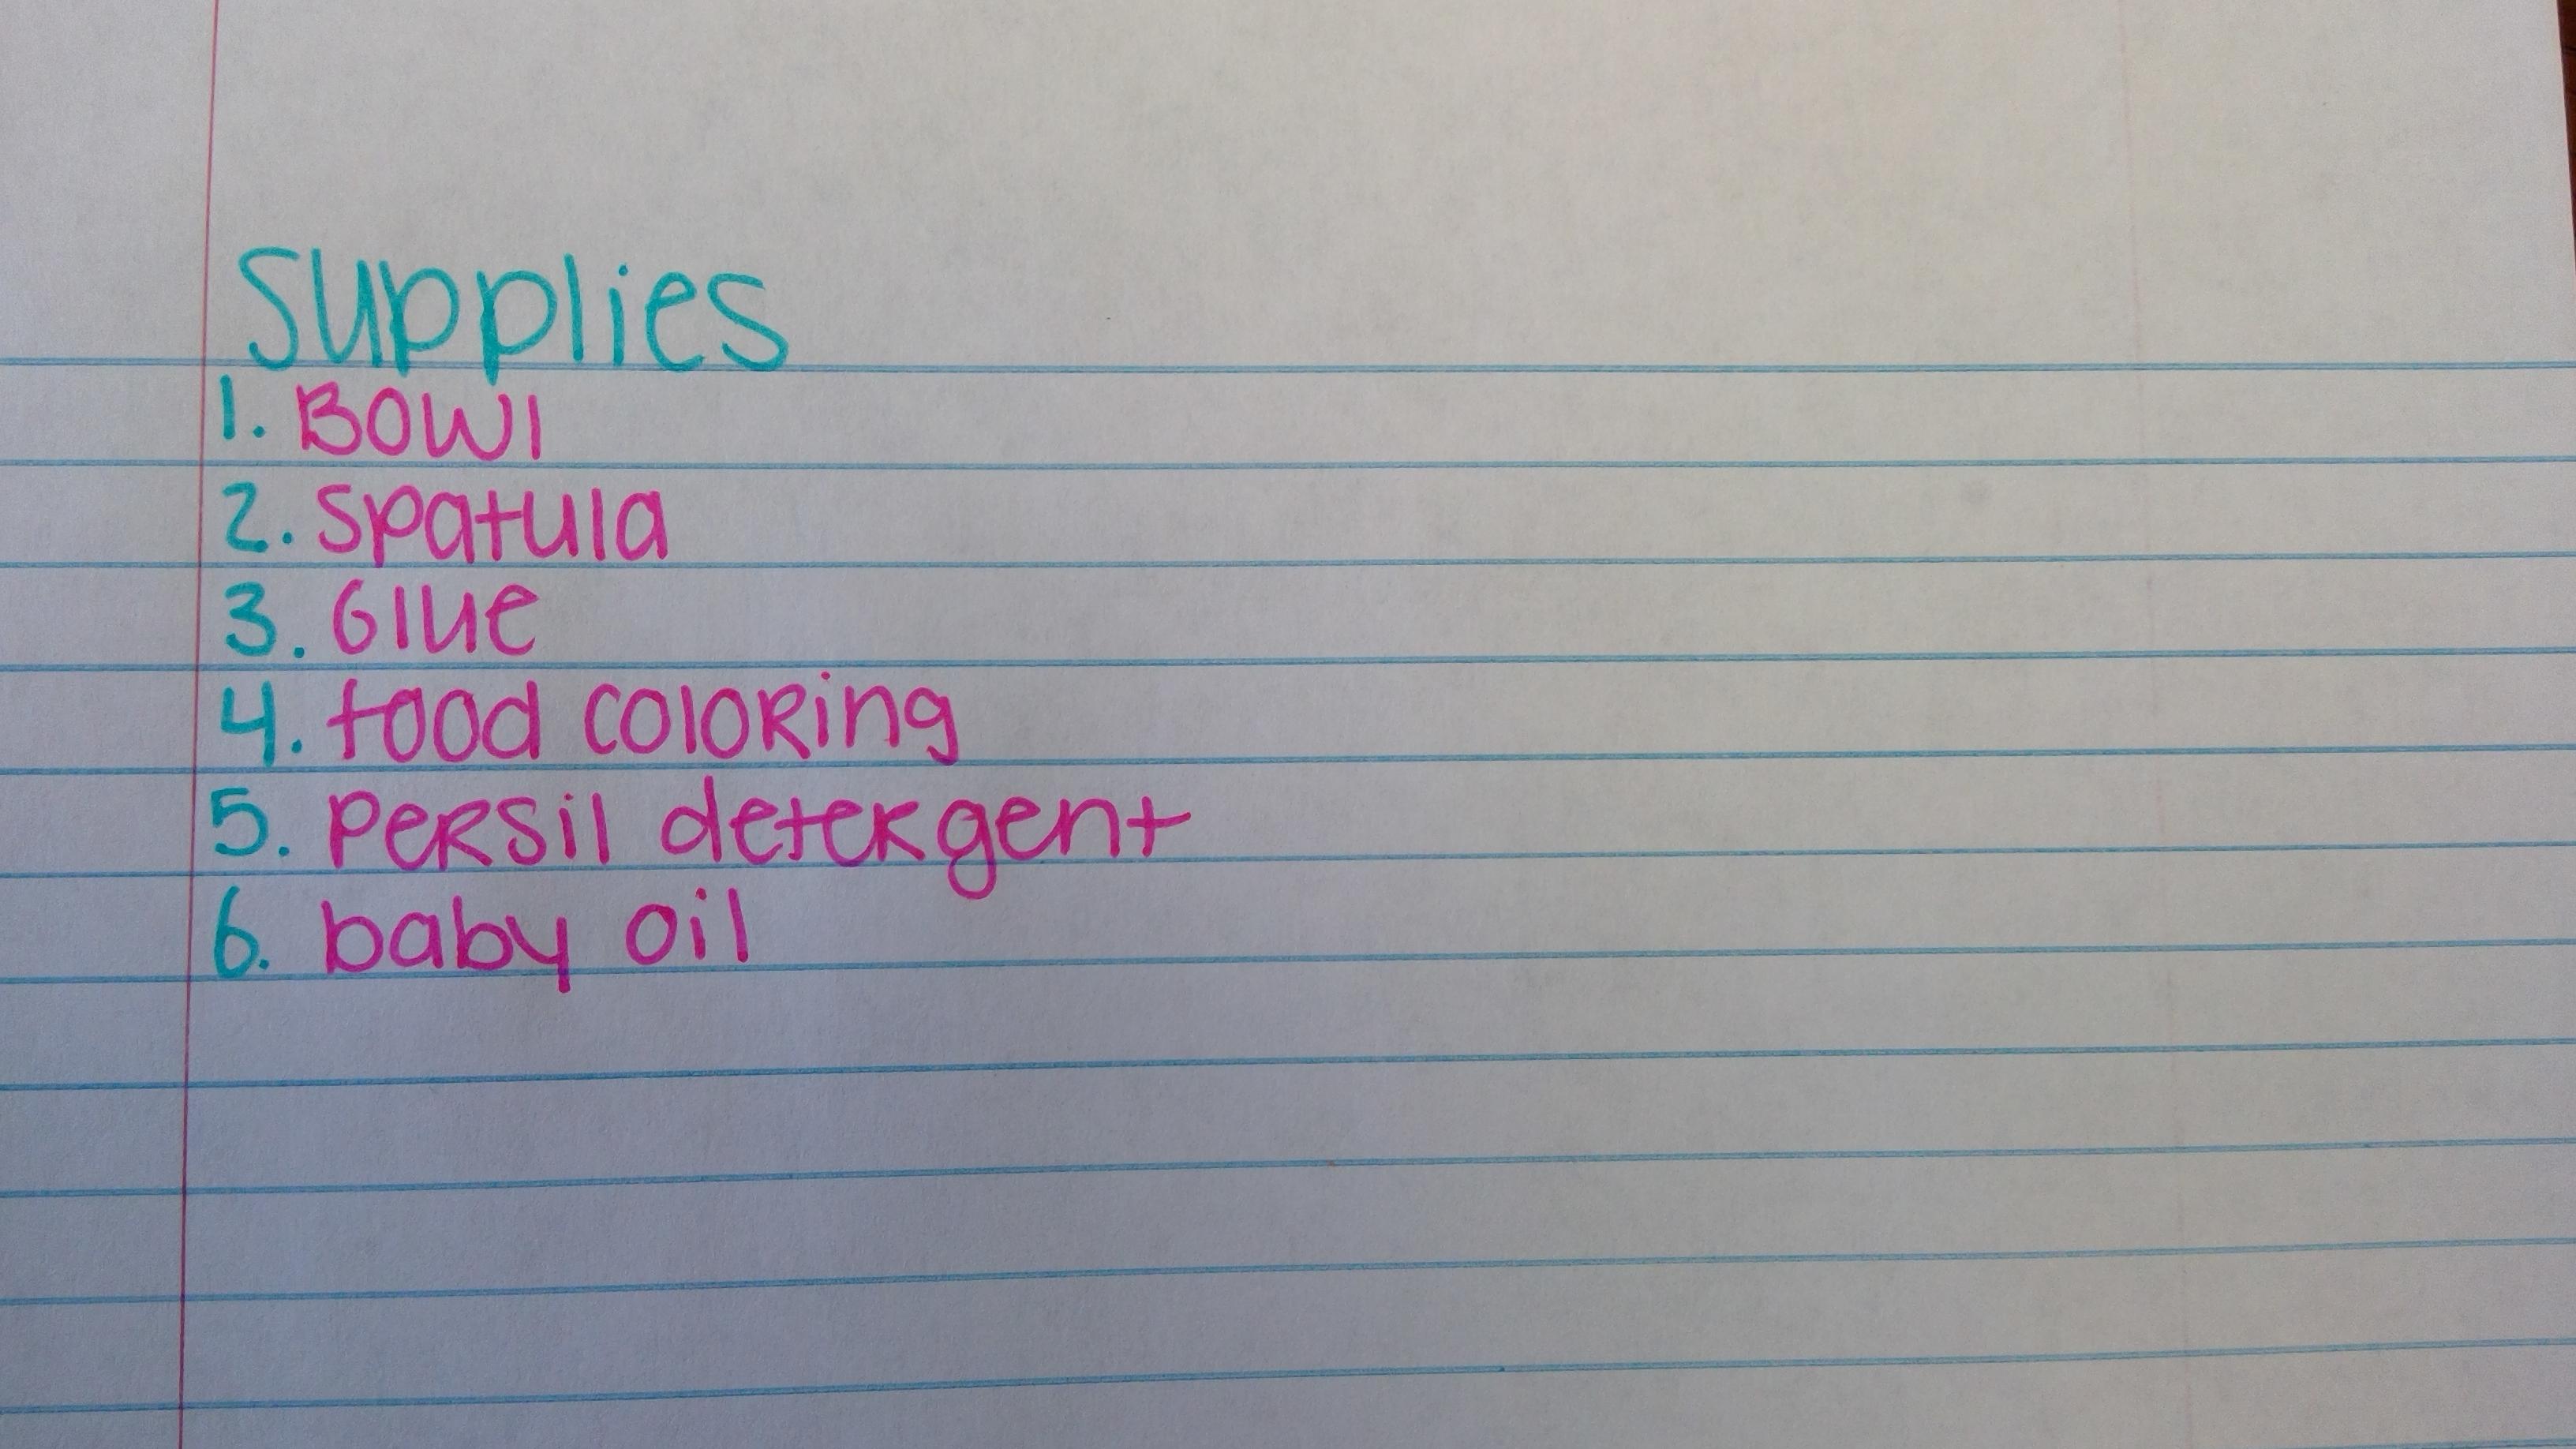 Supplies
1. Bowl
2. Spatula
3. Glue
4. food coloring
5. Persil detergent
6. baby oil